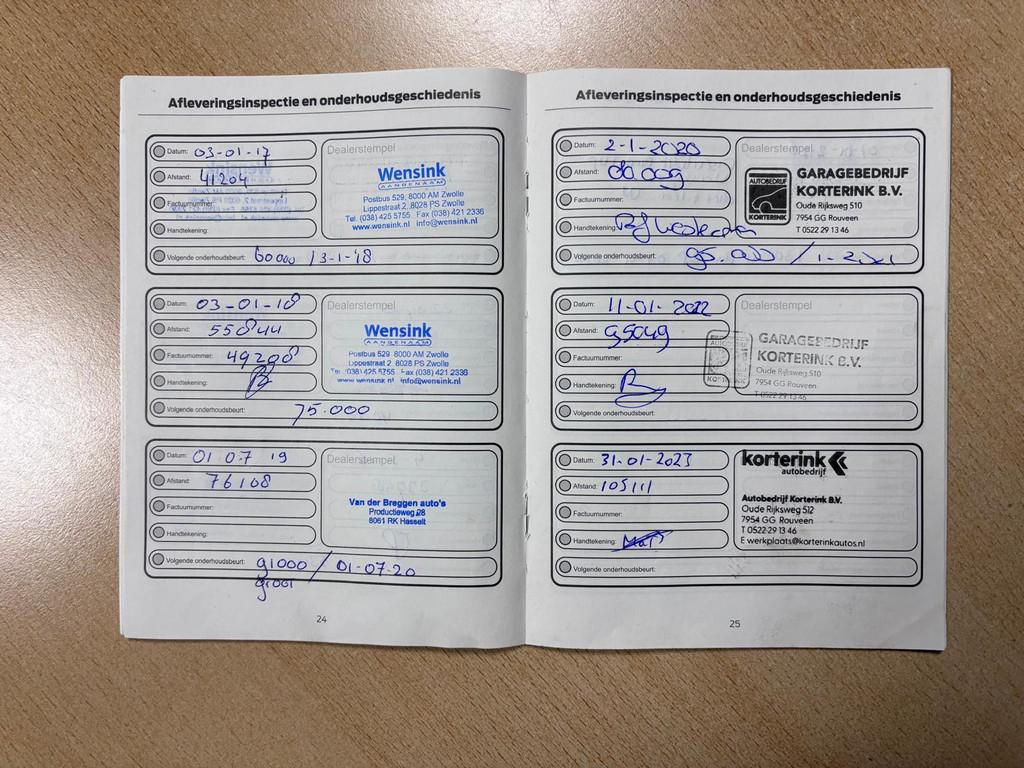 Afleveringsinspectie en onderhoudsgeschiedenis
Datum: 03-01-17
Afstand: 41204
Factuurnummer:
Handtekening:
Dealerstempel
Wensink
AANGENAAM
Postbus 529, 8000 AM Zwolle
Lippestraat 2, 8028 PS Zwolle
Tel. (038) 425 5755 Fax (038) 421 2336
www.wensink.nl info@wensink.nl
Volgende onderhoudsbeurt: 60000 / 3-1-'18
Datum: 03-01-18
Afstand: 55844
Factuurnummer: 49208
Handtekening:
Dealerstempel
Wensink
AANGENAAM
Postbus 529 8000 AM Zwolle
Lippestraat 2, 8028 PS Zwolle
Tel. (038) 425 5755 Fax (038) 421 2336
www.wensink.nl info@wensink.nl
Volgende onderhoudsbeurt: 75.000
Datum: 01 07 19
Afstand: 76108
Factuurnummer:
Handtekening:
Dealerstempel
Van der Breggen auto's
Productieweg 28
8061 RK Hasselt
Volgende onderhoudsbeurt: 91000 / 01-07-20
91001
24
Afleveringsinspectie en onderhoudsgeschiedenis
Datum: 2-1-2020
Afstand:
Factuurnummer:
Handtekening:
Dealerstempel
AUTOBEDRIJF
KORTERINK
GARAGEBEDRIJF
KORTERINK B.V.
Oude Rijksweg 510
7954 GG Rouveen
T 0522 29 13 46
Volgende onderhoudsbeurt: 95.000 / 1-2021
Datum: 11-01-2022
Afstand: 95049
Factuurnummer:
Handtekening:
Dealerstempel
GARAGEBEDRIJF
KORTERINK B.V.
Oude Rijksweg 510
7954 GG Rouveen
T 0522 29 13 46
Volgende onderhoudsbeurt:
Datum: 31-01-2023
Afstand: 105111
Factuurnummer:
Handtekening:
korterink
autobedrijf
Autobedrijf Korterink B.V.
Oude Rijksweg 512
7954 GG Rouveen
T 0522 29 13 46
E werkplaats@korterinkautos.nl
Volgende onderhoudsbeurt:
25